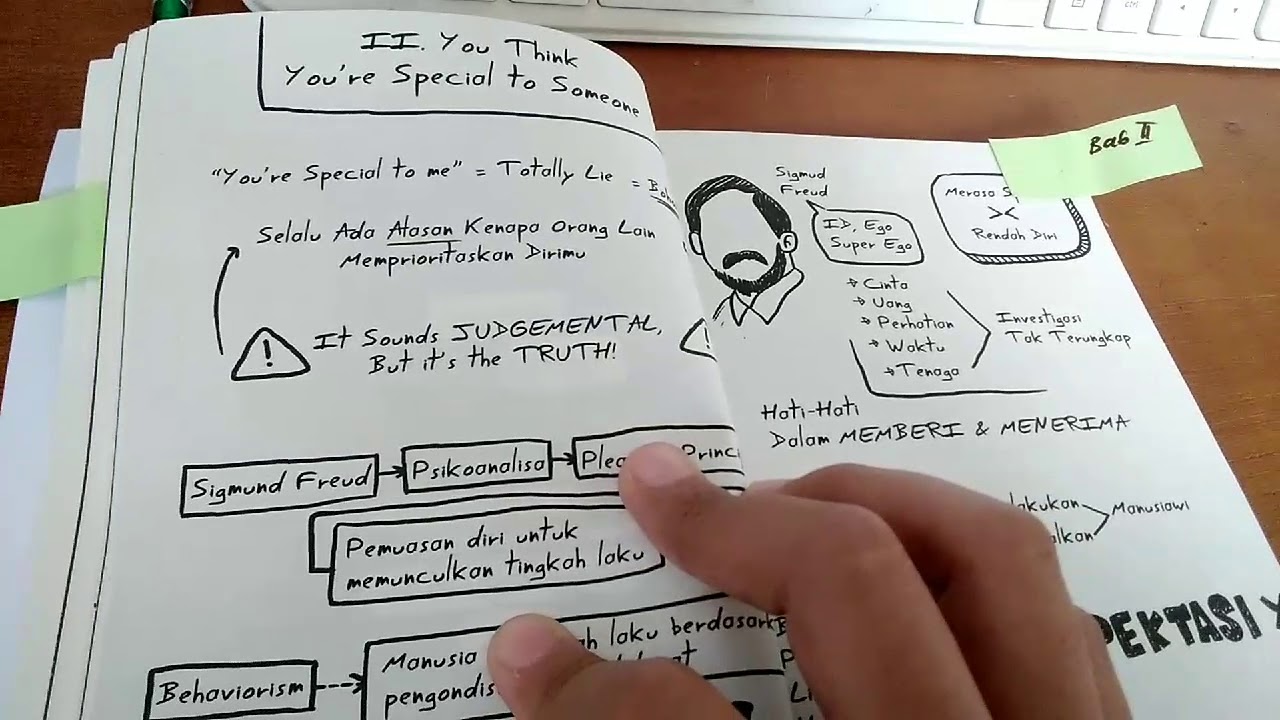 II. You Think
You're Special to Someone
"You're Special to me" = Totally Lie =
Selalu Ada Alasan Kenapa Orang Lain
Memprioritaskan Dirimu
! It Sounds JUDGEMENTAL,
But it's the TRUTH!
Sigmund Freud → Psikoanalisa →
Pemuasan diri untuk
memunculkan tingkah laku
Behaviorism
Manusia
laku
Bab II
Sigmud
Freud
ID, Ego
Super Ego
Merasa
><
Rendah Diri
→ Cinta
→ Uang
→ Perhatian
→ Waktu
→ Tenaga
Investigasi
Tak Terungkap
Hati-Hati
Dalam MEMBERI & MENERIMA
Manusiawi